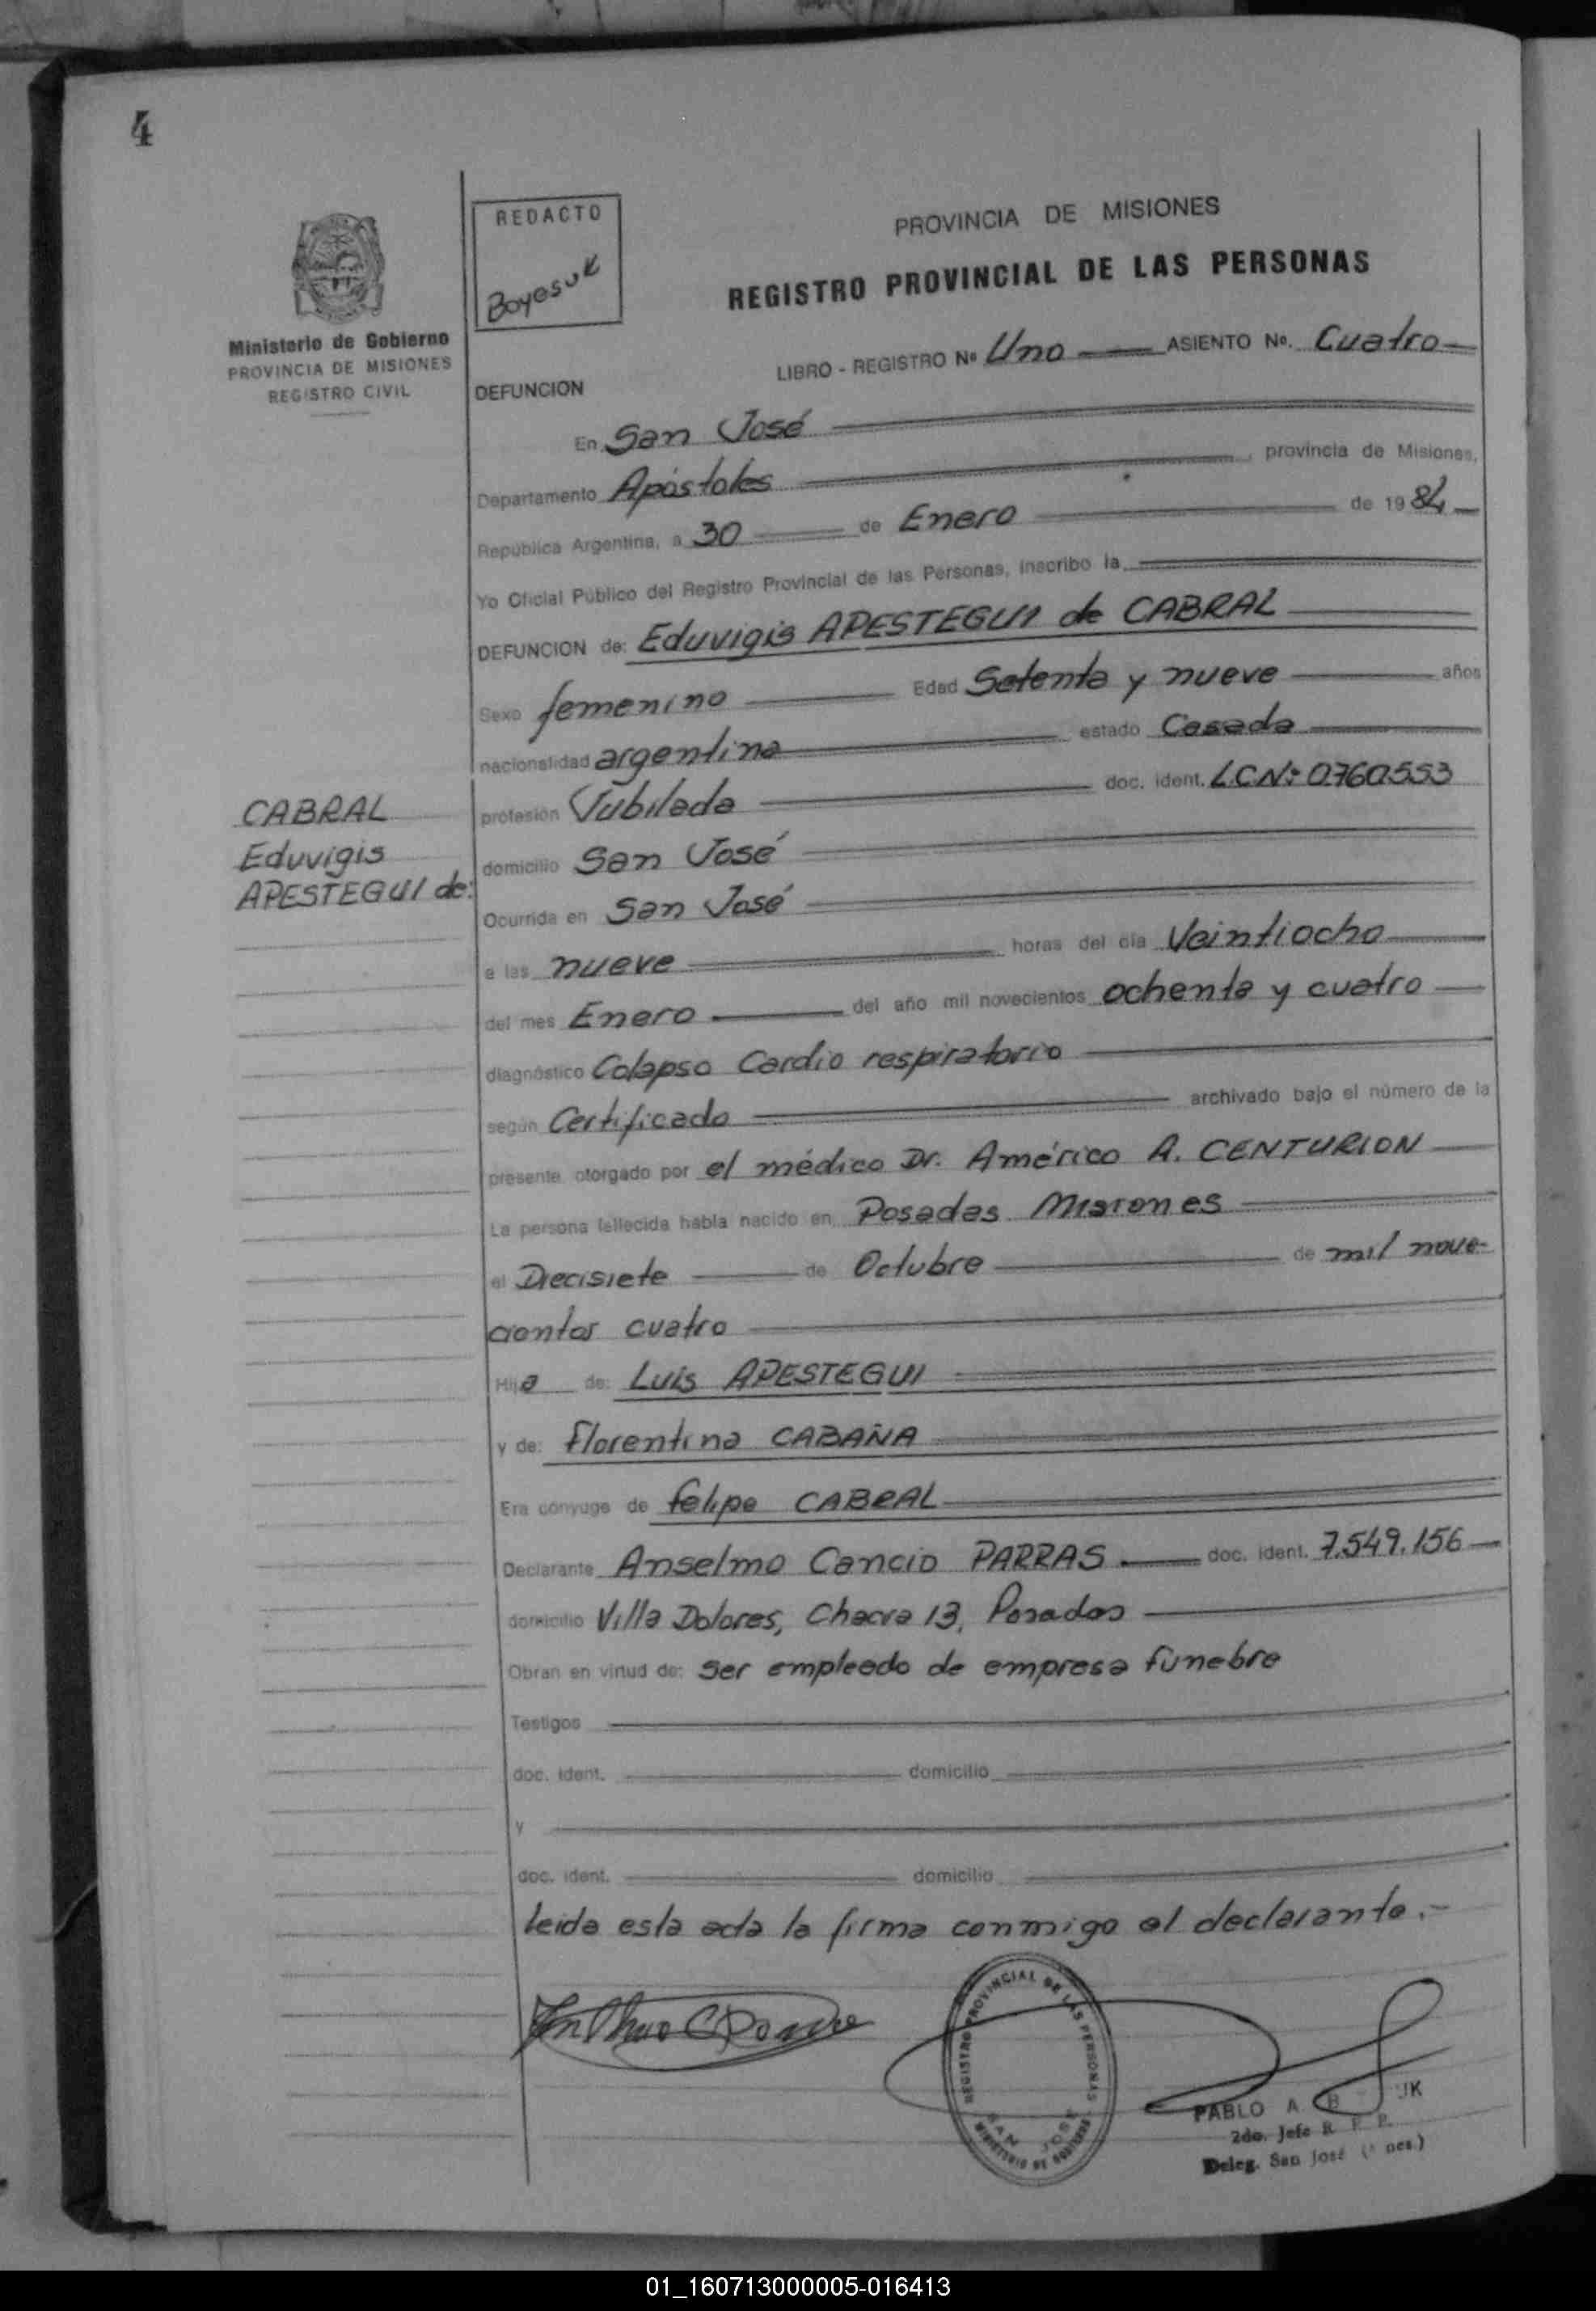 4
REDACTO
Boyesuk
Ministerio de Gobierno
PROVINCIA DE MISIONES
REGISTRO CIVIL
PROVINCIA DE MISIONES
REGISTRO PROVINCIAL DE LAS PERSONAS
LIBRO - REGISTRO Nº Uno ASIENTO No. Cuatro
DEFUNCION
En San José
Departamento Apóstoles, provincia de Misiones,
República Argentina, a 30 de Enero de 1984
Yo Oficial Público del Registro Provincial de las Personas, inscribo la
DEFUNCION de: Eduvigis APESTEGUI de CABRAL
Sexo femenino Edad Setenta y nueve años
nacionalidad argentina estado Casada
profesión Jubilada doc. ident. L.C.Nº 0.760.553
domicilio San José
Ocurrida en San José
a las nueve horas del día Veintiocho
del mes Enero del año mil novecientos ochenta y cuatro
diagnóstico Colapso Cardio respiratorio
según Certificado archivado bajo el número de la
presente, otorgado por el médico Dr. Américo A. CENTURION
La persona fallecida había nacido en Posadas Misiones
el Diecisiete de Octubre de mil nove-
cientos cuatro
Hija de: Luis APESTEGUI
y de: Florentina CABAÑA
Era cónyuge de Felipe CABRAL
Declarante Anselmo Cancio PARRAS doc. ident. 7.549.156
domicilio Villa Dolores, Chacra 13, Posadas
Obran en virtud de: ser empleado de empresa fúnebre
Testigos
doc. ident. domicilio
y
doc. ident. domicilio
leida esta acta la firma conmigo el declarante.-
CABRAL
Eduvigis
APESTEGUI de:
REGISTRO PROVINCIAL DE LAS PERSONAS
SAN JOSE
MINISTERIO DE GOBIERNO
PABLO A. B UK
2do. Jefe R. P. P.
Deleg. San José ( nes.)
01_160713000005-016413